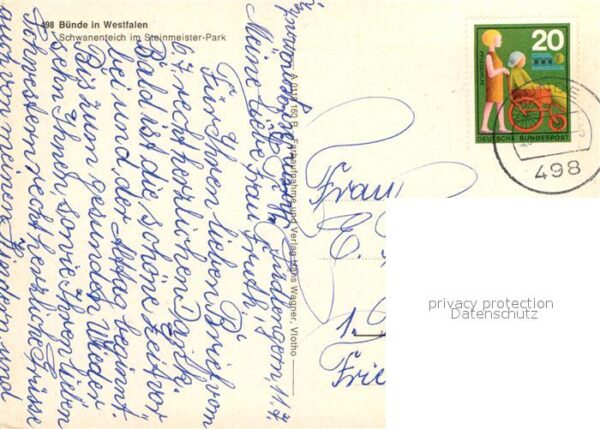 498 Bünde in Westfalen
Schwanenteich im Steinmeister-Park
Meine liebe Frau
Für Ihren lieben Brief vom
6.7. recht herzlichen Dank.
Bald ist die schöne Zeit vor
bei und der Alltag beginnt.
Bis zum gesunden Wieder
sehn Ihnen, sowie Ihren lieben
Schwestern recht herzliche Grüsse
auch von meinen Kindern und
Farbaufnahme und Verlag Hans Wagner, Vlotho
20
DEUTSCHE BUNDESPOST
498
Frau
E.
1
Frie
privacy protection
Datenschutz